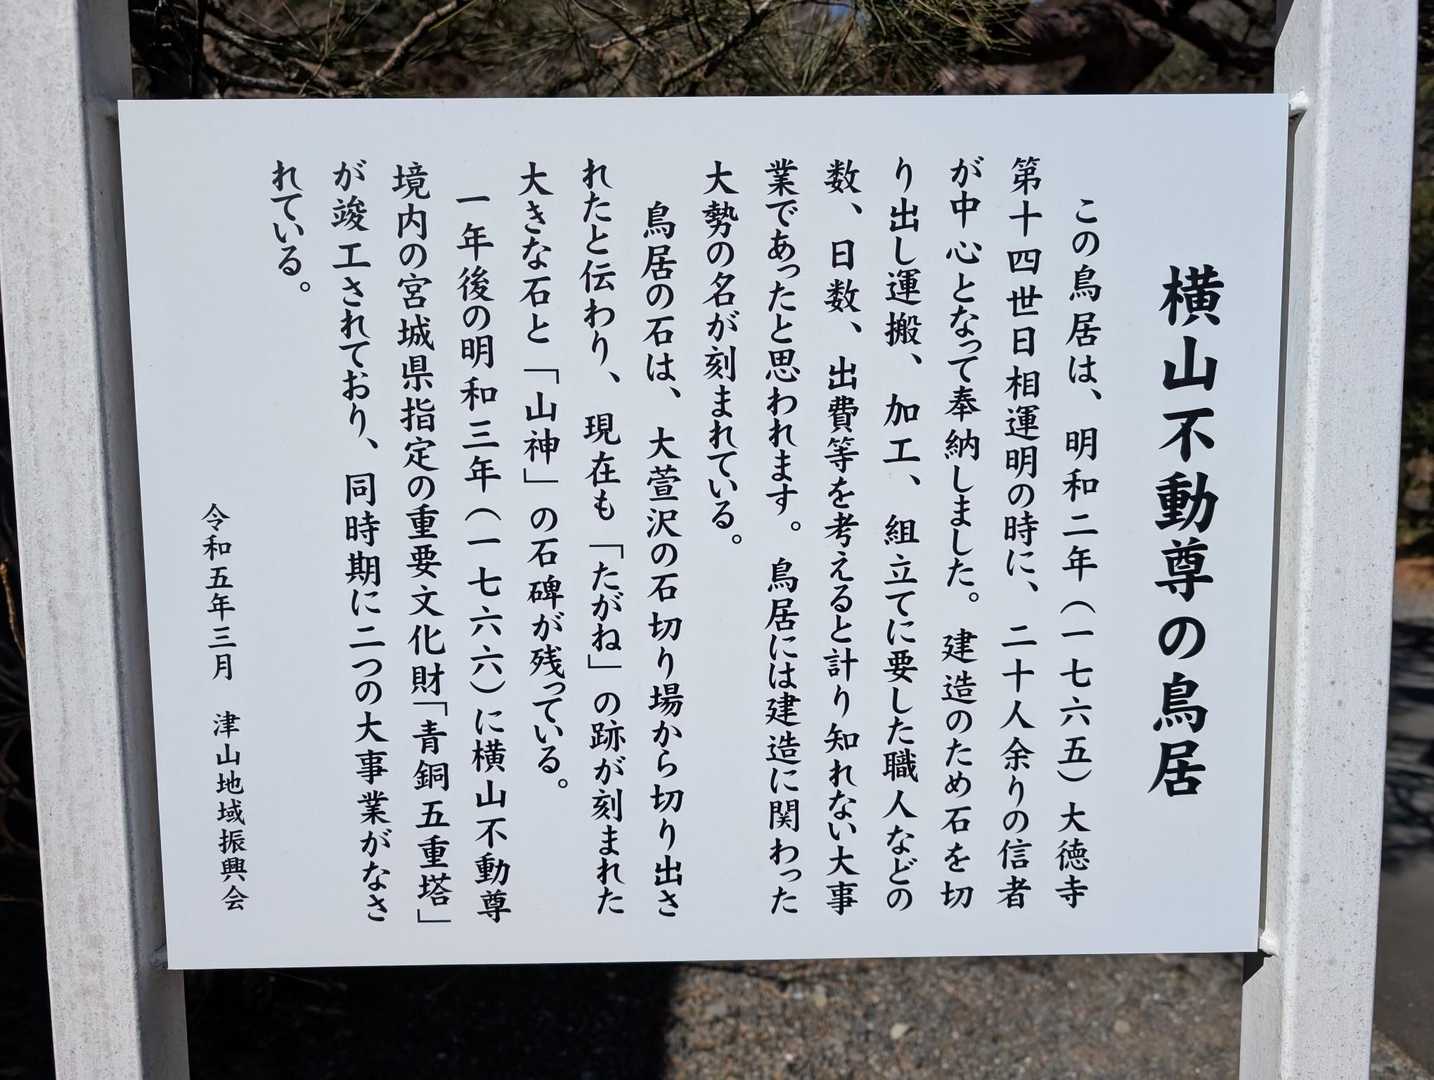 横山不動尊の鳥居
この鳥居は、明和二年(一七六五)大徳寺
第十四世日相運明の時に、二十人余りの信者
が中心となって奉納しました。建造のため石を切
り出し運搬、加工、組立てに要した職人などの
数、日数、出費等を考えると計り知れない大事
業であったと思われます。鳥居には建造に関わった
大勢の名が刻まれている。
鳥居の石は、大萱沢の石切り場から切り出さ
れたと伝わり、現在も「たがね」の跡が刻まれた
大きな石と「山神」の石碑が残っている。
一年後の明和三年(一七六六)に横山不動尊
境内の宮城県指定の重要文化財「青銅五重塔」
が竣工されており、同時期に二つの大事業がなさ
れている。
令和五年三月 津山地域振興会